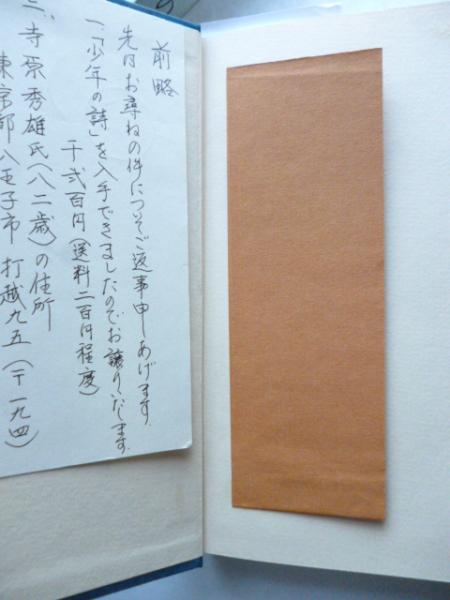 前略
先日お尋ねの件につきご返事申しあげます
一、「少年の詩」を入手できましたのでお譲りいたします
千弐百円(送料二百円程度)
二、寺原秀雄氏(八二歳)の住所
東京都八王子市打越九五(〒一九四)